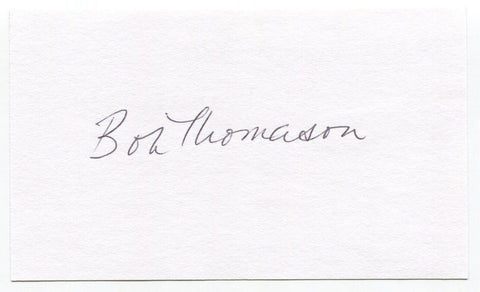 Bob Thomason